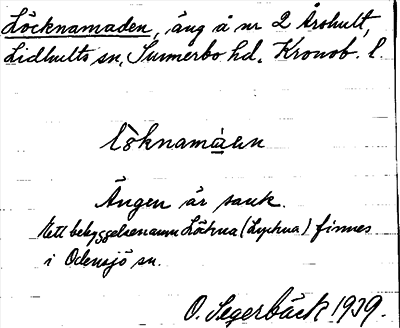 Löcknamaden, äng å nr 2 Århult,
Lidhults sn, Sunnerbo hd. Kronob. l.
löknamàen
Ängen är sank.
Ett bebyggelsenamn Lökna (Lyckna) finnes
i Odensjö sn.
O. Segerbäck 1939.